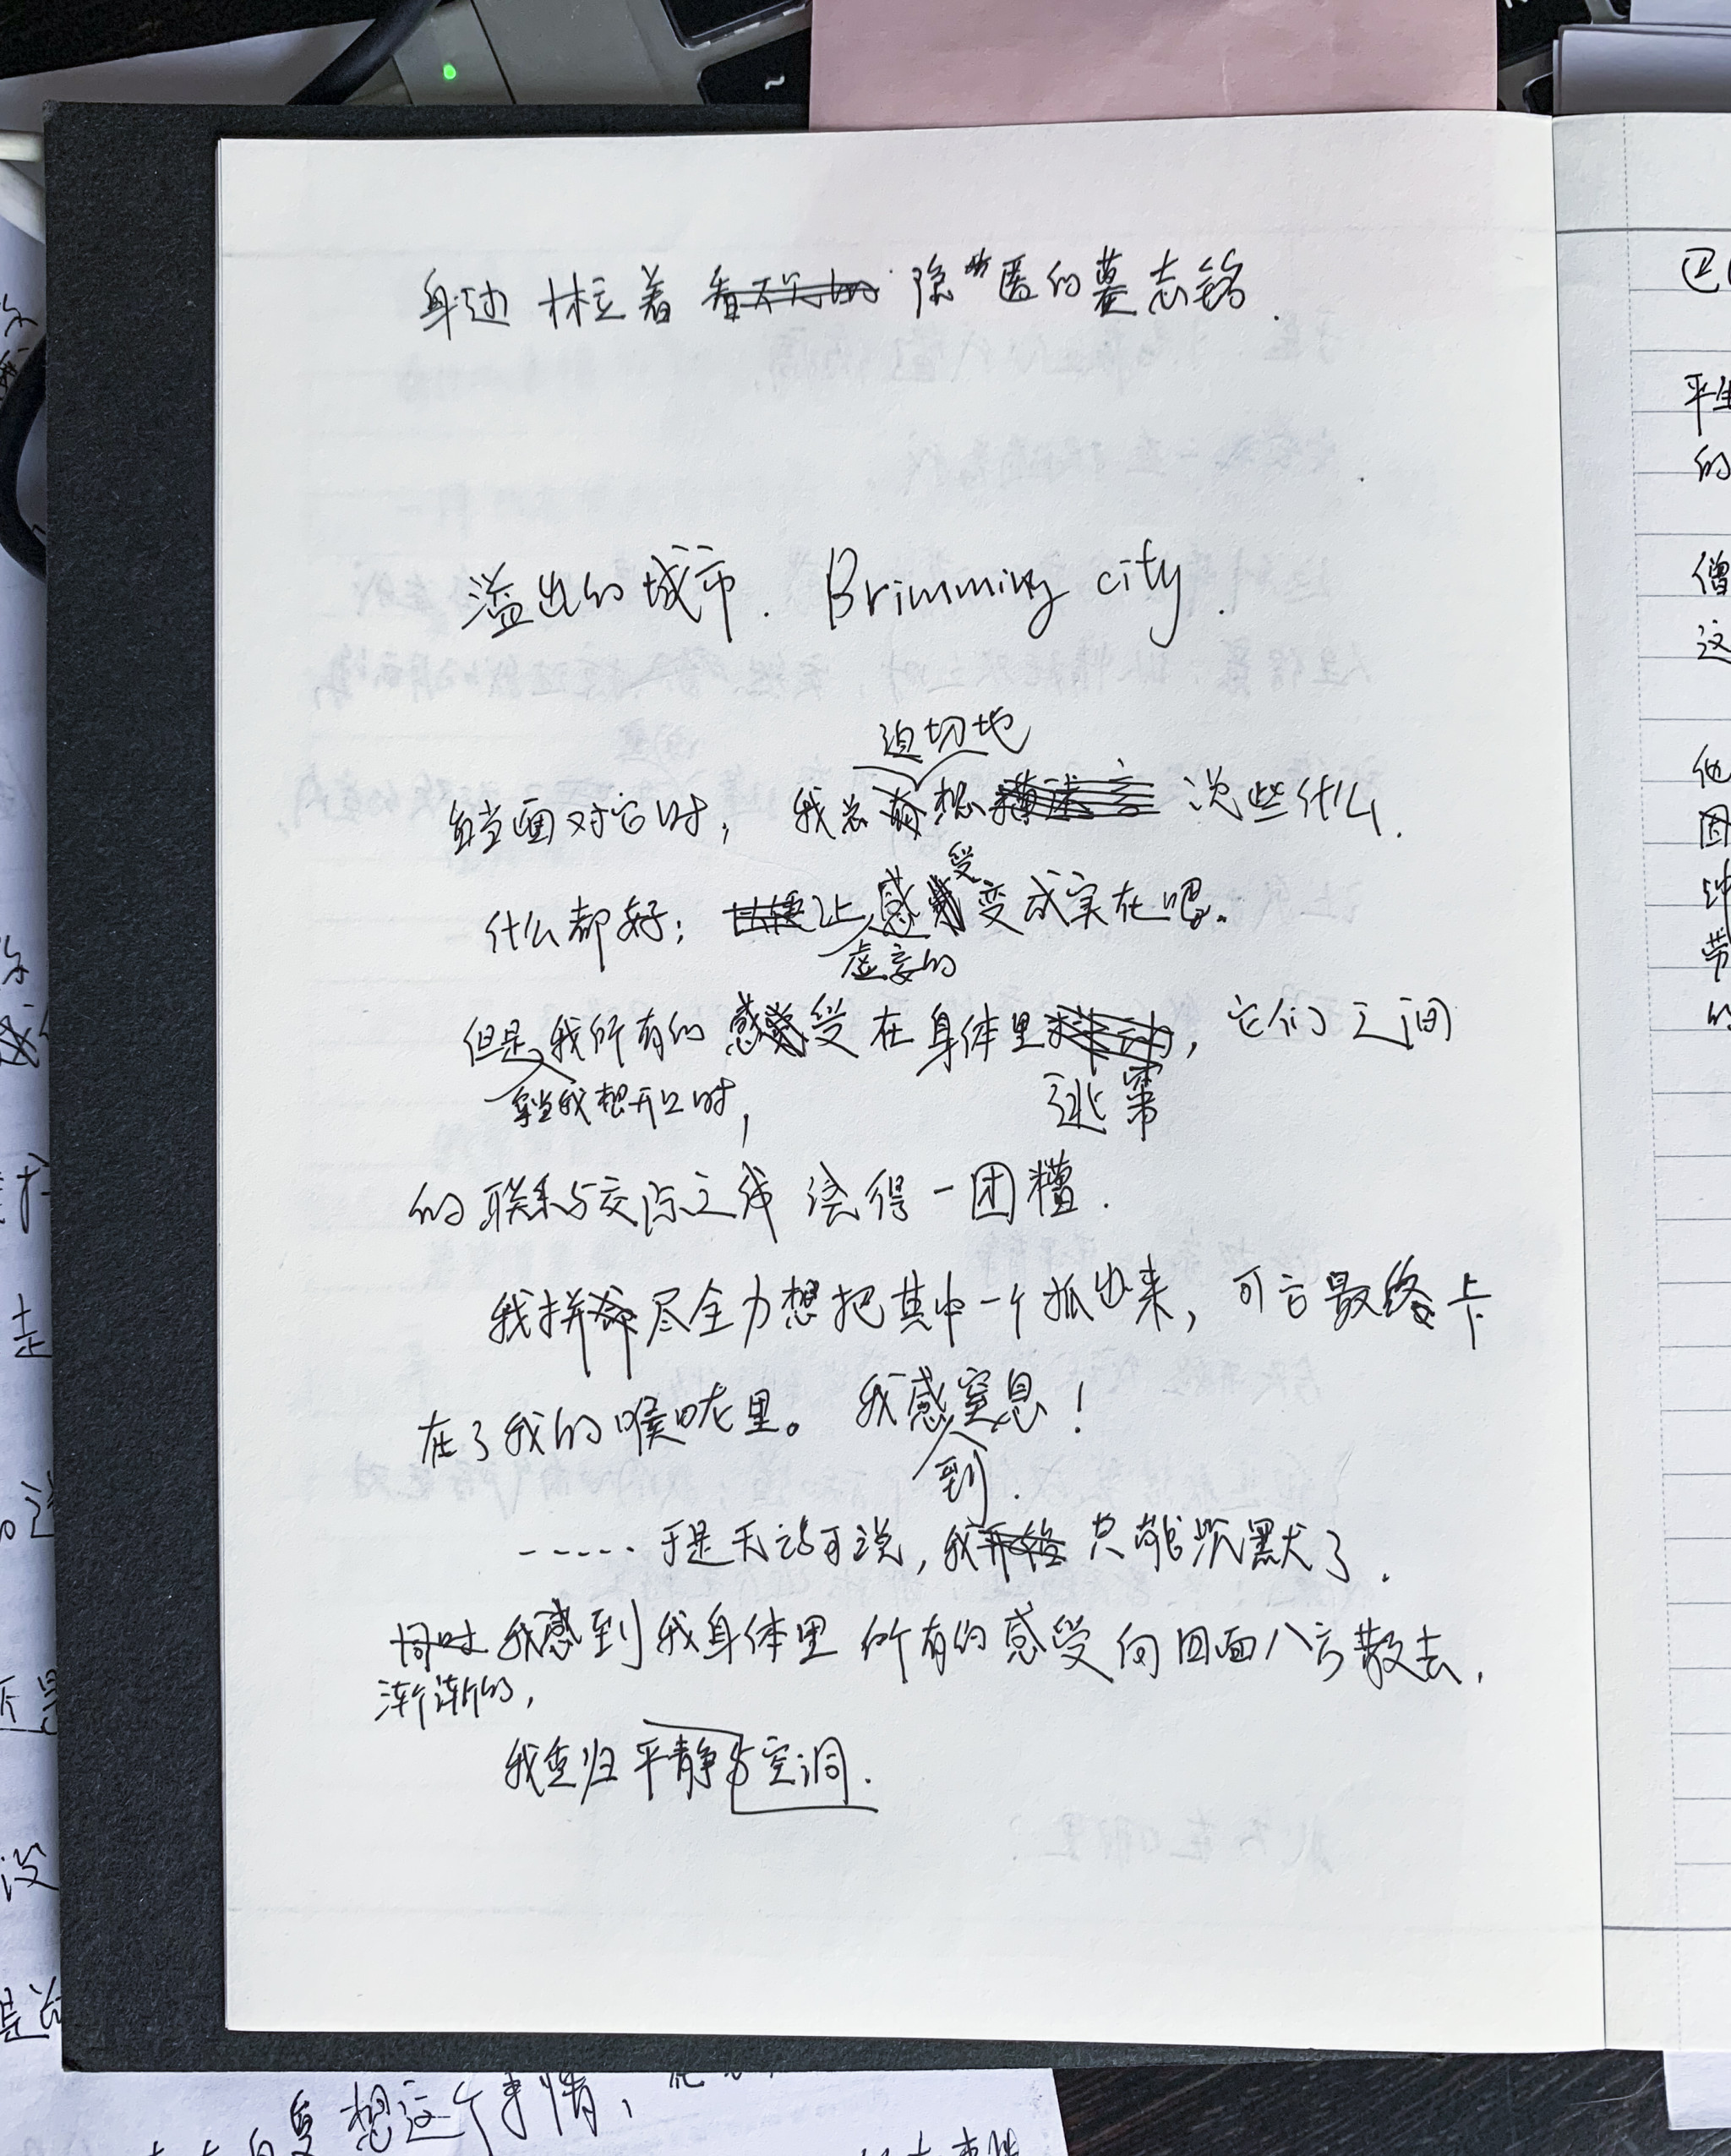 身边林立着隐匿的墓志铭.
溢出的城市. Brimming city.
迫切地
每当面对它时, 我总想说些什么.
受
什么都好; 让感变成实在吧。
虚妄的
但是我所有的感受在身体里, 它们之间
每当我想开口时,
逃窜
的联系与交际之线绕得一团糟.
我拼尽全力想把其中一个抓出来, 可它最终卡
在了我的喉咙里。我感窒息!
到.
-----于是无话可说, 我只能沉默了.
同时我感到我身体里所有的感受向四面八方散去,
渐渐的,
我重归平静与空洞.
想这个事情,